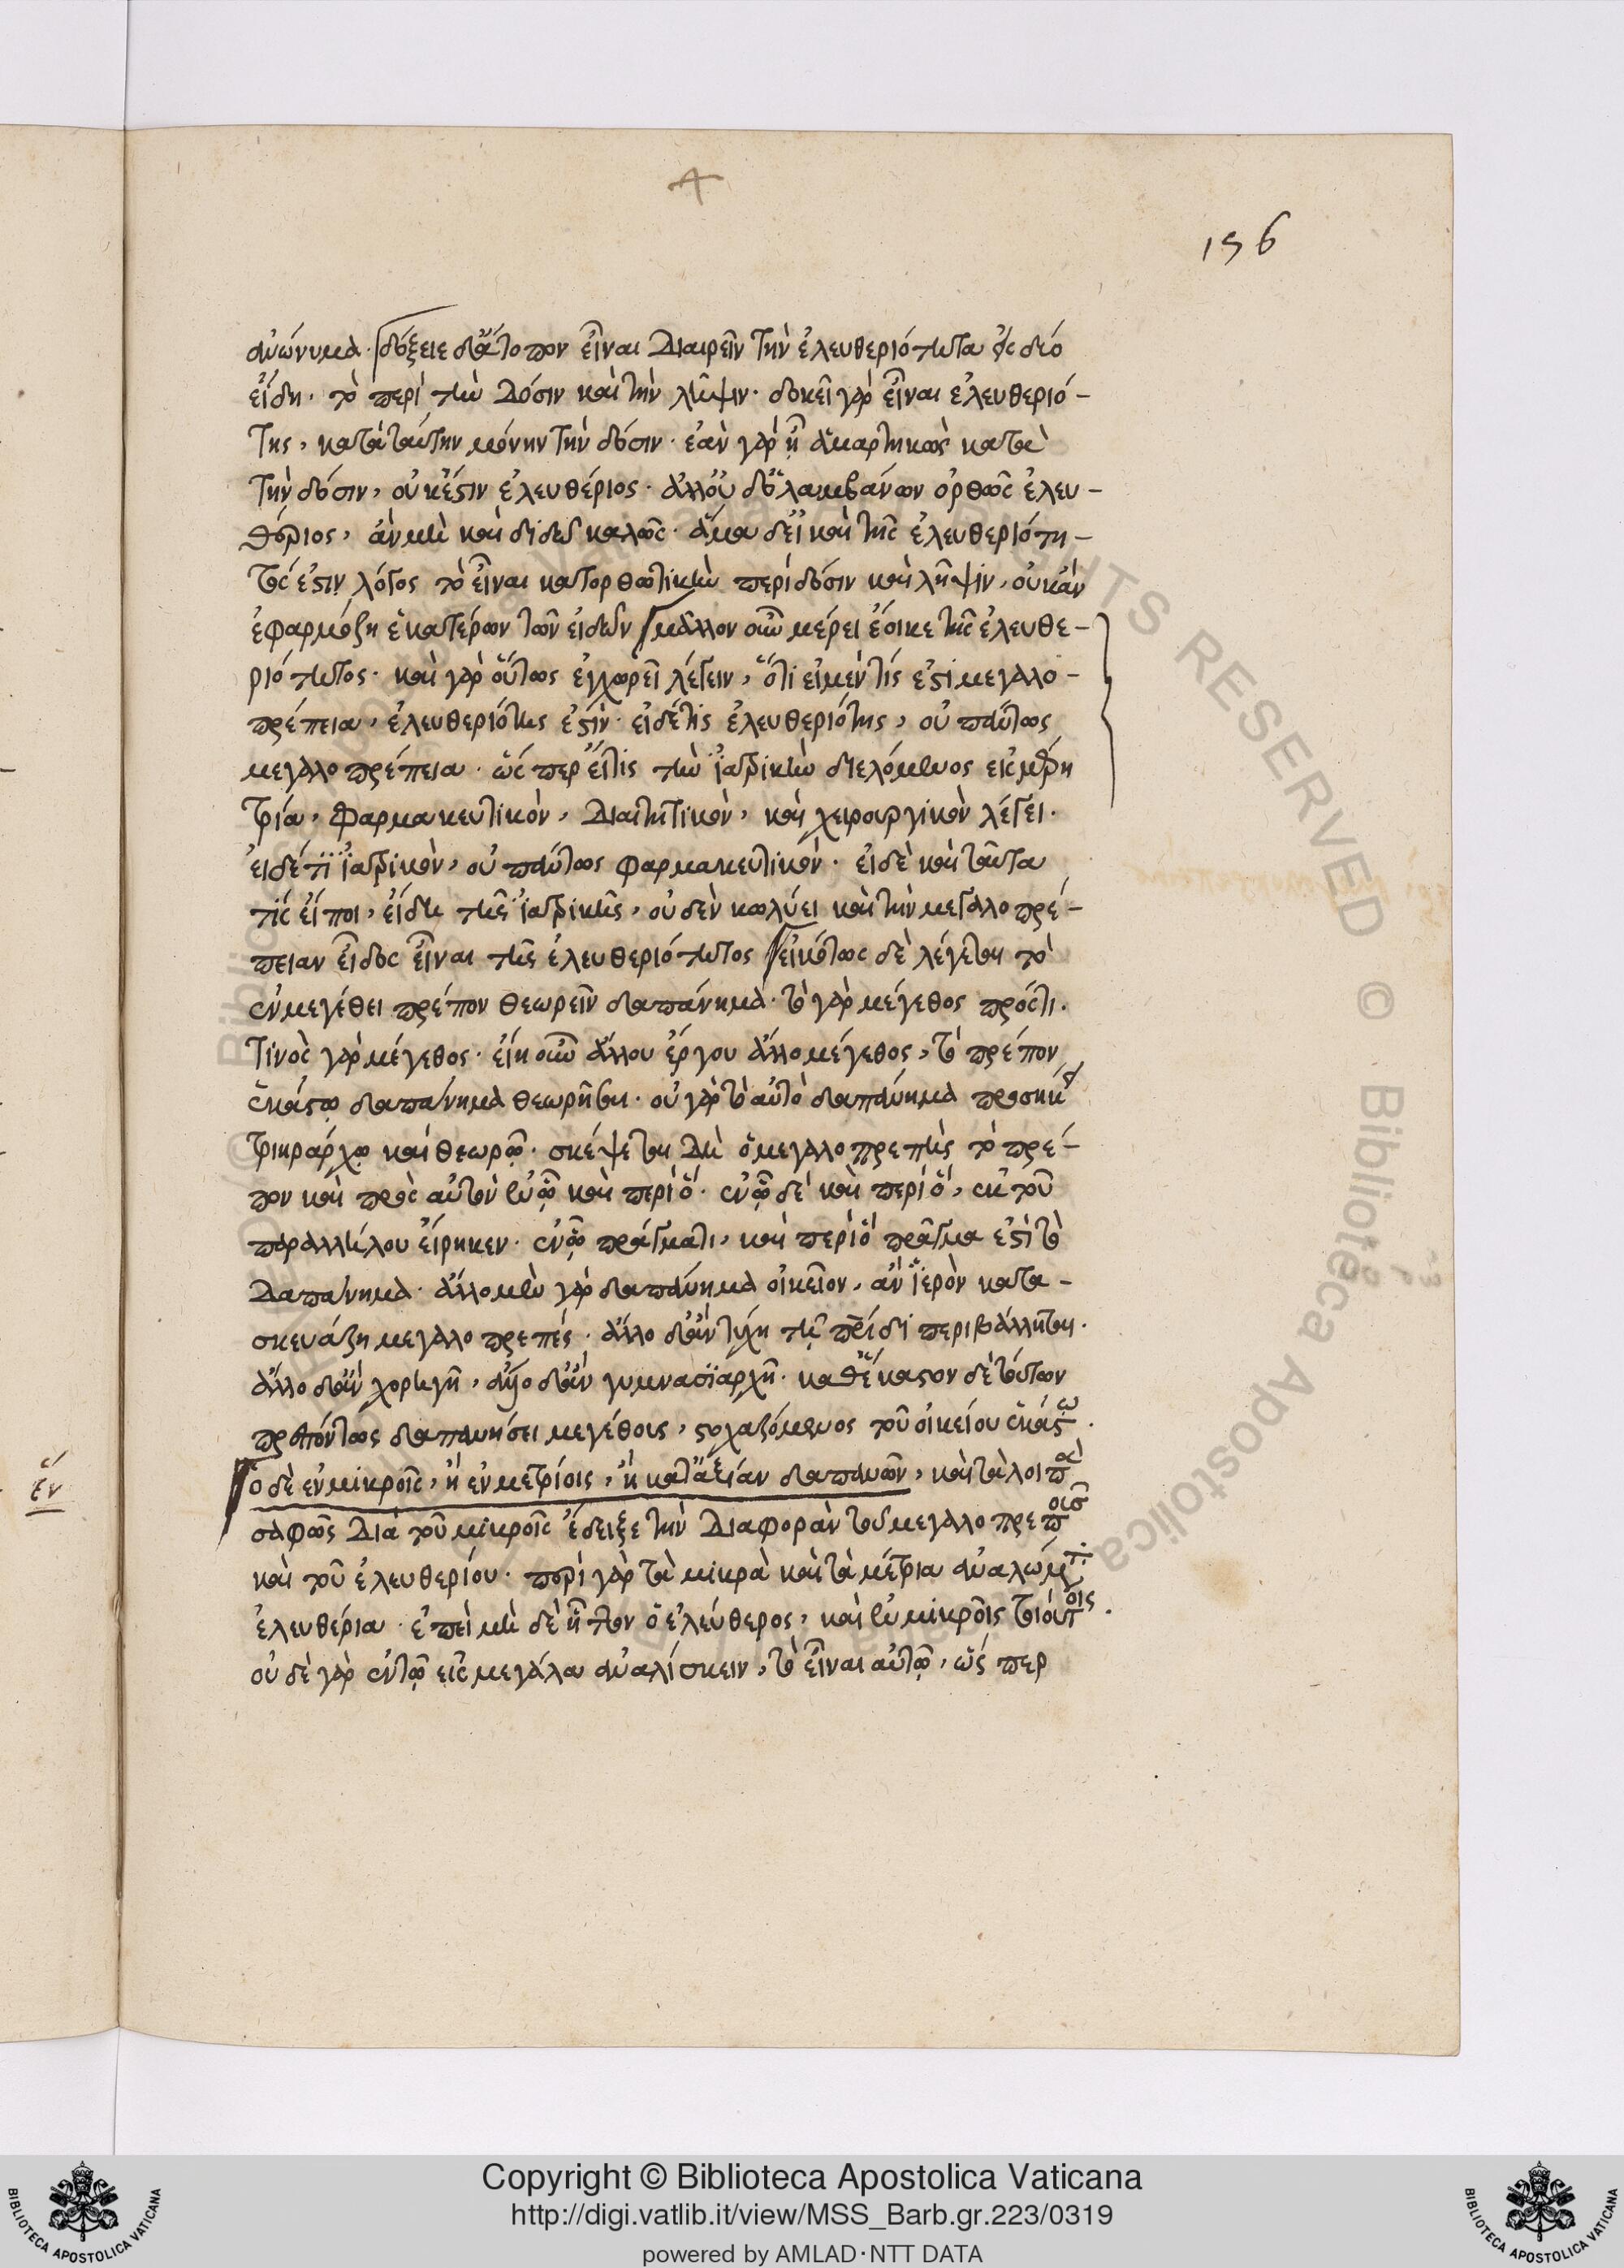 156
ἀνώνυμα. δόξειε δ' ἂν ἄτοπον εἶναι διαιρεῖν τὴν ἐλευθεριότητα εἰς δύο
εἴδη. τὸ περὶ τὴν δόσιν καὶ τὴν λῆψιν. δοκεῖ γὰρ εἶναι ἐλευθεριό-
της, κατὰ ταύτην μόνην τὴν δόσιν. ἐὰν γὰρ ᾖ ἁμαρτηκὼς κατὰ
τὴν δόσιν, οὐκέστιν ἐλευθέριος. ἀλλ' οὐδ' ὁ λαμβάνων ὀρθῶς ἐλευ-
θέριος, ἂν μὴ καὶ διδῷ καλῶς. ἅμα δ' εἰ καὶ τῆς ἐλευθεριότη-
τός ἐστιν λόγος τὸ εἶναι κατορθωτικὴν περὶ δόσιν καὶ λῆψιν, οὐκ ἂν
ἐφαρμόζη ἑκατέρων τῶν εἰδῶν μᾶλλον οὖν μέρει ἔοικε τῆς ἐλευθε-
ριότητος. καὶ γὰρ οὕτως ἐγχωρεῖ λέγειν, ὅτι εἰ μέν τις ἐστὶ μεγαλο-
πρέπεια, ἐλευθεριότης ἐστίν. εἰ δέ τις ἐλευθεριότης, οὐ πάντως
μεγαλοπρέπεια. ὥσπερ εἴ τις τὴν ἰατρικὴν διελόμενος εἰς μέρη
τρία, φαρμακευτικὸν, διαιτητικὸν, καὶ χειρουργικὸν λέγει.
εἰ δέ τι ἰατρικὸν, οὐ πάντως φαρμακευτικόν. εἰ δὲ καὶ ταῦτα
τίς εἴποι, εἴδη τῆς ἰατρικῆς, οὐδὲν κωλύει καὶ τὴν μεγαλοπρέ-
πειαν εἶδος εἶναι τῆς ἐλευθεριότητος εἰκότως δὲ λέγεται τὸ
ἐν μεγέθει πρέπον θεωρεῖν δαπάνημα. τὸ γὰρ μέγεθος πρός τι.
τινὸς γὰρ μέγεθος. εἴη οὖν ἄλλου ἔργου ἄλλο μέγεθος, τὸ πρέπον
ἑκάστῳ δαπάνημα θεωρῆται. οὐ γὰρ τὸ αὐτὸ δαπάνημα προσήκει
τριηράρχῳ καὶ θεωρῷ. σκέψεται δὴ ὁ μεγαλοπρεπὴς τὸ πρέ-
πον καὶ πρὸς αὐτὸν ἐν ᾧ καὶ περὶ ὅ. ἐν ᾧ δὲ καὶ περὶ ὅ, ἐκ τοῦ
παραλλήλου εἴρηκεν. ἐν ᾧ πράγματι, καὶ περὶ ὃ πρᾶγμα ἐστὶ τὸ
δαπάνημα. ἄλλο μὲν γὰρ δαπάνημα οἰκεῖον, ἂν ἱερὸν κατα-
σκευάζη μεγαλοπρεπές. ἄλλο δ' ἂν τύχη τῇ πατρίδι περιβάλληται.
ἄλλο δ' ἂν χορηγῇ, ἄλλο δ' ἂν γυμνασιαρχῇ. καθ' ἕκαστον δὲ τούτων
πρεπόντως δαπανήσει μεγέθους, στοχαζόμενος τοῦ οἰκείου ἑκάστῳ.
ὁ δὲ ἐν μικροῖς, ἢ ἐν μετρίοις, ἢ κατ' ἀξίαν δαπανῶν, καὶ τὰ λοιπὰ
σαφῶς διὰ τοῦ μικροῖς ἔδειξε τὴν διαφορὰν τοῦ μεγαλοπρεποῦς
καὶ τοῦ ἐλευθερίου. περὶ γὰρ τὰ μικρὰ καὶ τὰ μέτρια ἀναλώματ
ἐλευθέρια. ἐπεὶ μὴ δὲ ἧττον ὁ ἐλεύθερος, καὶ ἐν μικροῖς τοιούτοις.
οὐδὲ γὰρ ἐν τῷ εἰς μεγάλα ἀναλίσκειν, τὸ εἶναι αὐτῷ, ὥσπερ
ἐν
Copyright © Biblioteca Apostolica Vaticana
http://digi.vatlib.it/view/MSS_Barb.gr.223/0319
powered by AMLAD·NTT DATA
BIBLIOTECA APOSTOLICA VATICANA
BIBLIOTECA APOSTOLICA VATICANA